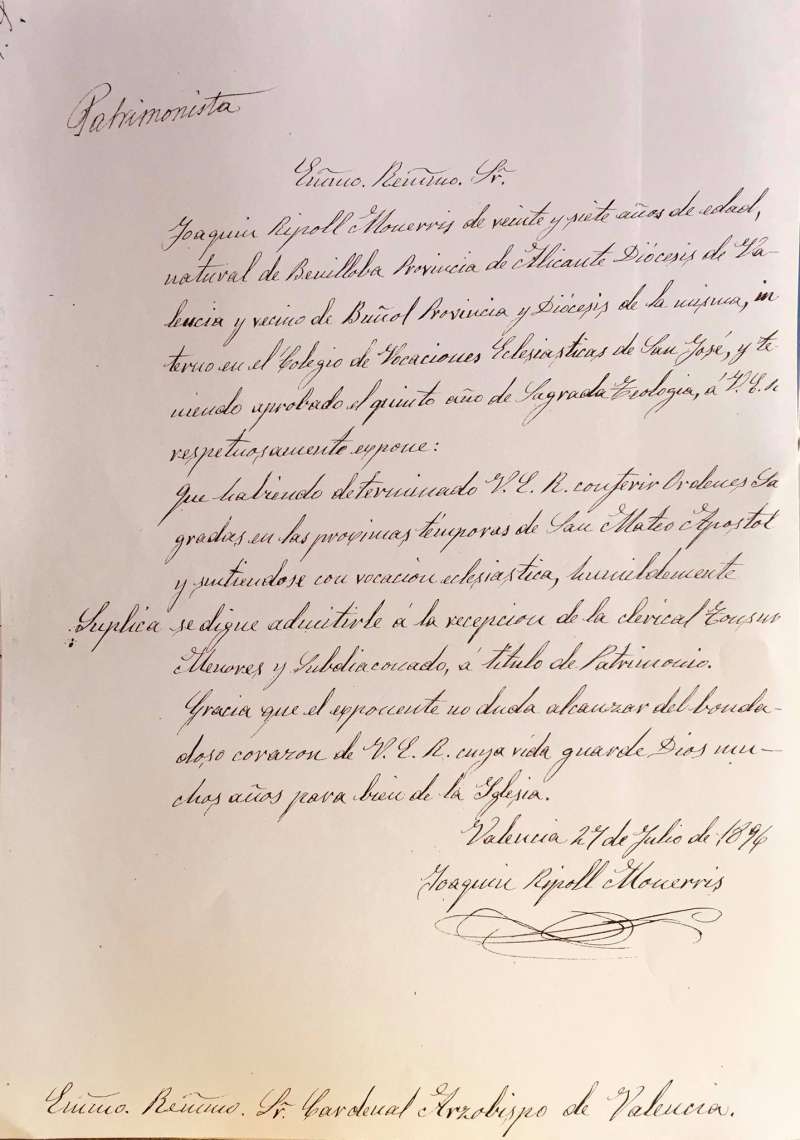 Patrimonista
Emmo. Revmo. Sr.
Joaquin Ripoll Monerris de veinte y siete años de edad,
natural de Benilloba Provincia de Alicante Diócesis de Va-
lencia y vecino de Buñol Provincia y Diócesis de la misma, in
terno en el Colegio de Vocaciones Eclesiasticas de San José, y te-
niendo aprobado el quinto año de Sagrada Teologia, á V. E. R
respetuosamente expone:
Que habiendo determinado V. E. R. conferir Ordenes Sa
gradas en las proximas témporas de San Mateo Apostol
y sintiendose con vocacion eclesiastica, humildemente
Suplica se digne admitirle á la recepcion de la clerical Tonsur
Menores y Subdiaconado, á titulo de Patrimonio.
Gracia que el exponente no duda alcanzar del bonda-
doso corazon de V. E. R. cuya vida guarde Dios mu-
chos años para bien de la Iglesia.
Valencia 27 de Julio de 1896
Joaquin Ripoll Monerris
Emmo. Revmo. Sr. Cardenal Arzobispo de Valencia.